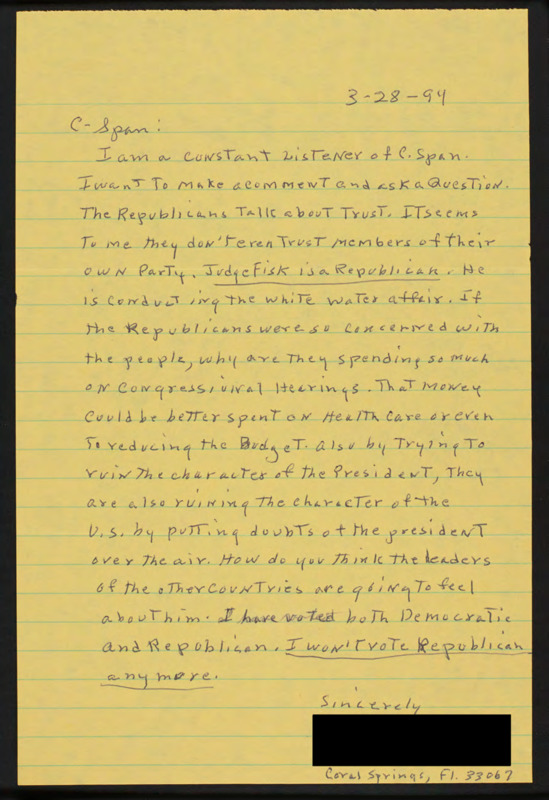 3-28-94
C-Span:
I am a constant Listener of C. Span.
I want To make a comment and ask a Question.
The Republicans Talk about Trust. IT seems
To me they don't even Trust members of their
own Party. Judge Fisk is a Republican. He
is conduct ing the white water affair. If
the Republicans were so concerned with
the people, why are they spending so much
on Congressional Hearings. That money
could be better spent on Health Care or even
To reducing the Budget. Also by Trying To
ruin the character of the President, They
are also ruining the character of the
U.S. by putting doubts of the president
over the air. How do you think the leaders
of the other countries are going to feel
about him. I have voted both Democratic
and Republican. I won't vote Republican
any more.
Sincerely
Coral Springs, Fl. 33067